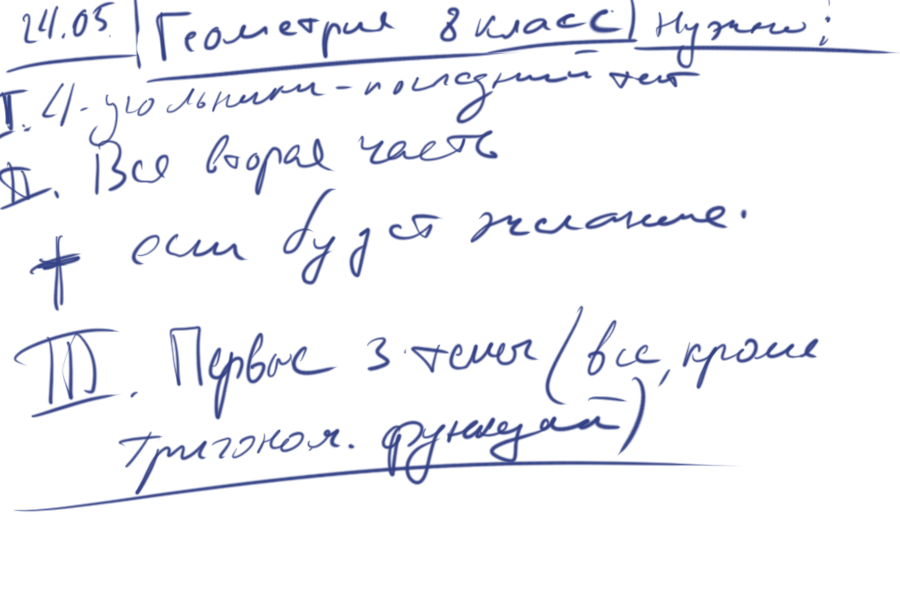 24.05 | Геометрия 8 класс | Нужно:
I. 4-угольники - последний тест
II. Все вторая часть
+ если будет желание.
III. Первые 3 темы (все, кроме
тригоном. функций)